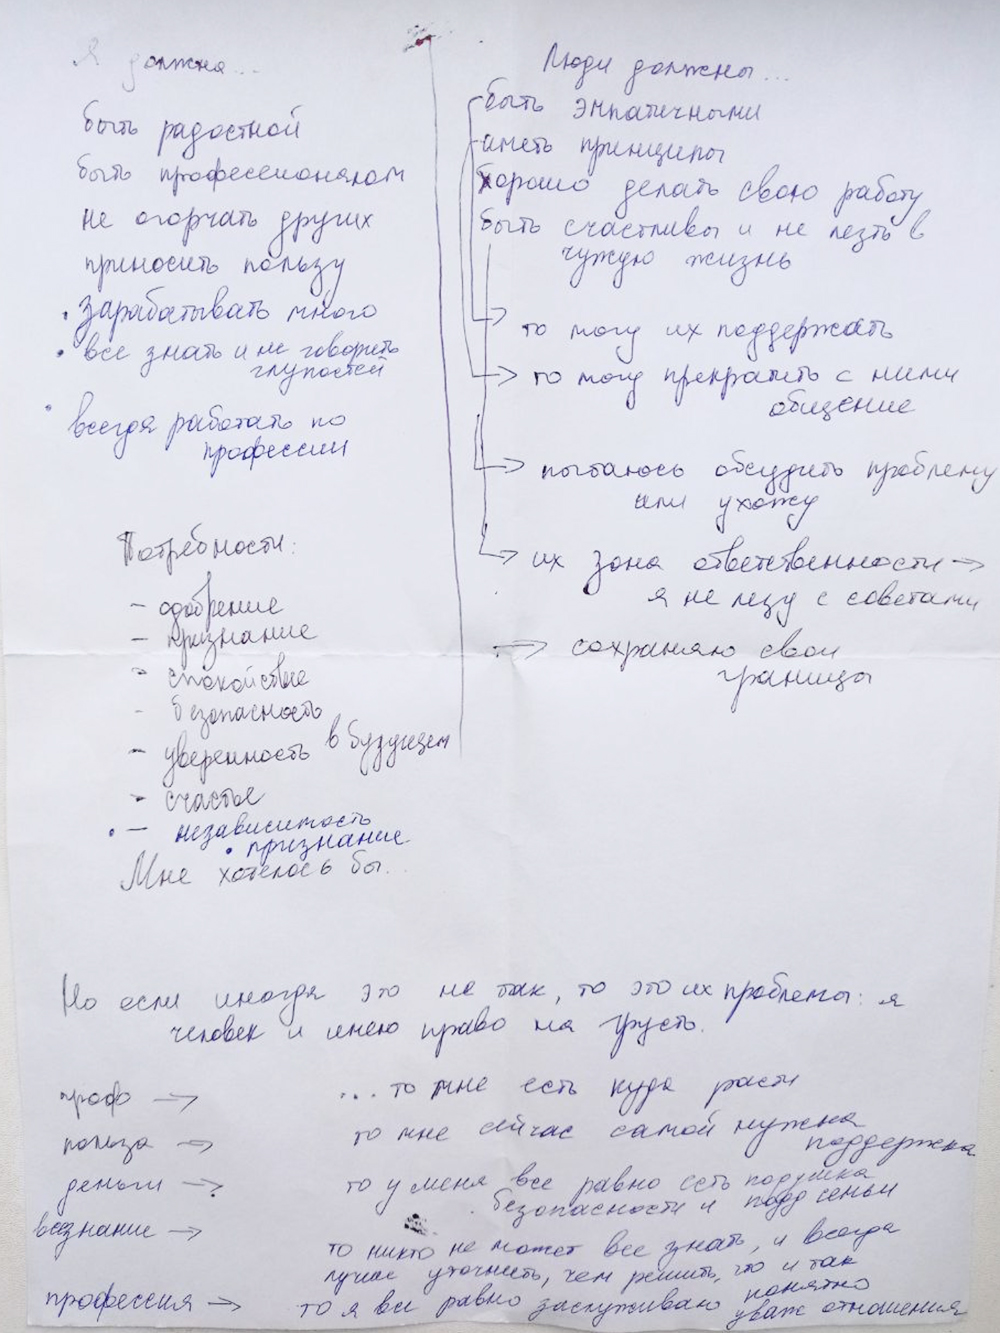 Я должна...
быть радостной
быть профессионалом
не огорчать других
приносить пользу
• зарабатывать много
• все знать и не говорить
глупостей
• всегда работать по
профессии
Потребности:
- одобрение
- признание
- спокойствие
- безопасность
- уверенность в будущем
- счастье
• - независимость
• признание
Мне хотелось бы...
Люди должны...
быть эмпатичными
иметь принципы
хорошо делать свою работу
быть счастливы и не лезть в
чужую жизнь
→ то могу их поддержать
→ то могу прекратить с ними
общение
→ пытаюсь обсудить проблему
или ухожу
→ их зона ответственности →
я не лезу с советами
→ сохраняю свои
границы
Но если иногда это не так, то это их проблемы: я
человек и имею право на грусть.
проф → ...то мне есть куда расти
польза → то мне сейчас самой нужна
поддержка
деньги → то у меня все равно есть подушка
безопасности и подд семьи
всезнание → то никто не может все знать, и всегда
лучше уточнить, чем решить, что и так
понятно
профессия → то я все равно заслуживаю
уваж отношения